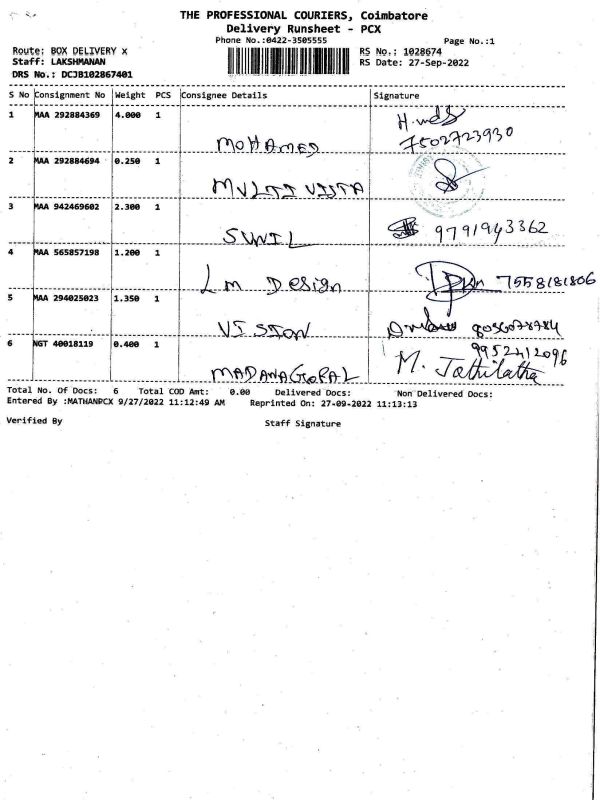 THE PROFESSIONAL COURIERS, Coimbatore
Delivery Runsheet - PCX
Phone No.:0422-3505555
Page No.:1
Route: BOX DELIVERY x
RS No.: 1028674
Staff: LAKSHMANAN
RS Date: 27-Sep-2022
DRS No.: DCJB102867401
S No Consignment No Weight PCS Consignee Details Signature
1 MAA 292884369 4.000 1
MOHAMED 7502723930
2 MAA 292884694 0.250 1
MULTI VISTA
3 MAA 942469602 2.300 1
SUNIL 9791943362
4 MAA 565857198 1.200 1
Lm Design 7558181806
5 MAA 294025023 1.350 1
VISION 8056078784
6 NGT 40018119 0.400 1 9952412096
MADANAGOPAL M. Jathilatha
Total No. Of Docs: 6 Total COD Amt: 0.00 Delivered Docs: Non Delivered Docs:
Entered By :MATHANPCX 9/27/2022 11:12:49 AM Reprinted On: 27-09-2022 11:13:13
Verified By Staff Signature